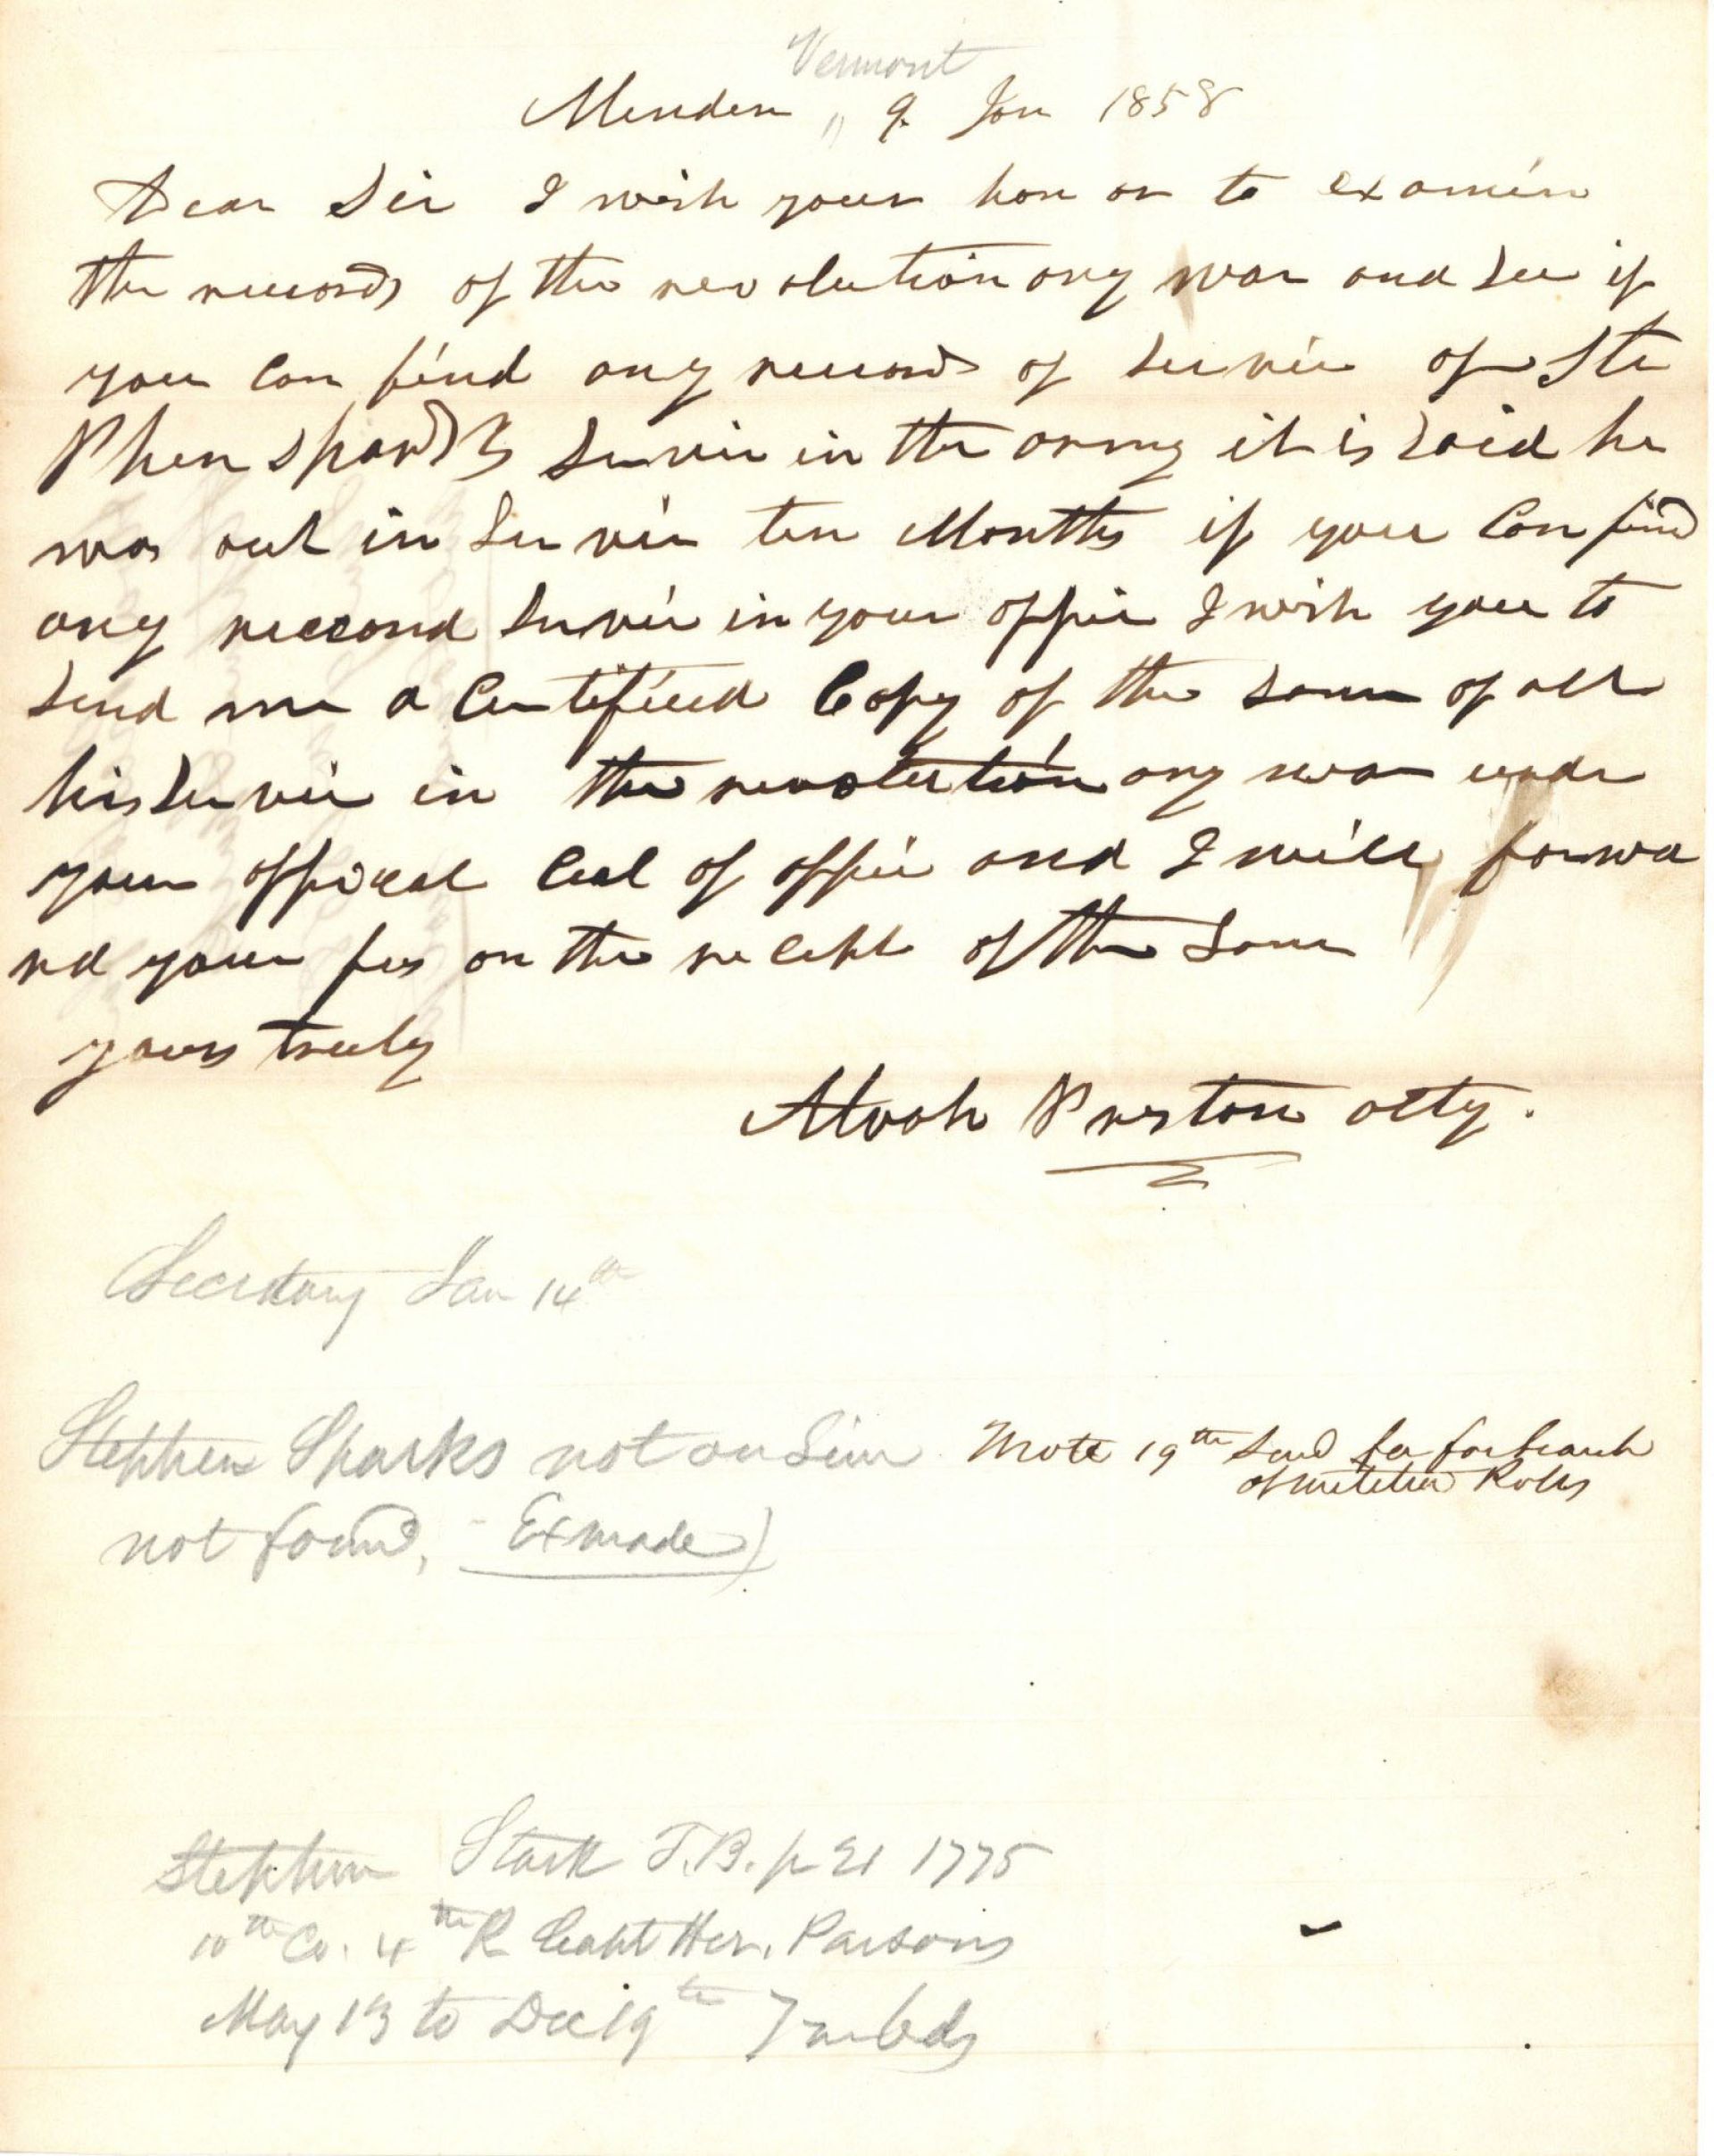 Vermont
Menden " 9. Jan 1858
Dear Sir I wish your hon or to examin
the records of the revolution ary war and see if
you Can find any records of servic of Ste
Phen sparks servic in the army it is said he
was out in servic ten Months if you Can find
any reccord servic in your offic I wish you to
send me a Certified Copy of the same of all
his servic in the revolution ary war unde
your offical Ceal of offic and I will forwa
rd your fees on the receipt of the same
yours truly
Alvah Preston atty.
Secretary Jan 14th
Stephen Sparks not on
not found, - Ex made
Wrote 19th send fee for search
of Rolls
Stephen Stark T.B. p 21 1775
10th Co. 4th R Capt Hez. Parsons
May 13 to Dec 19th 7 m 6 ds